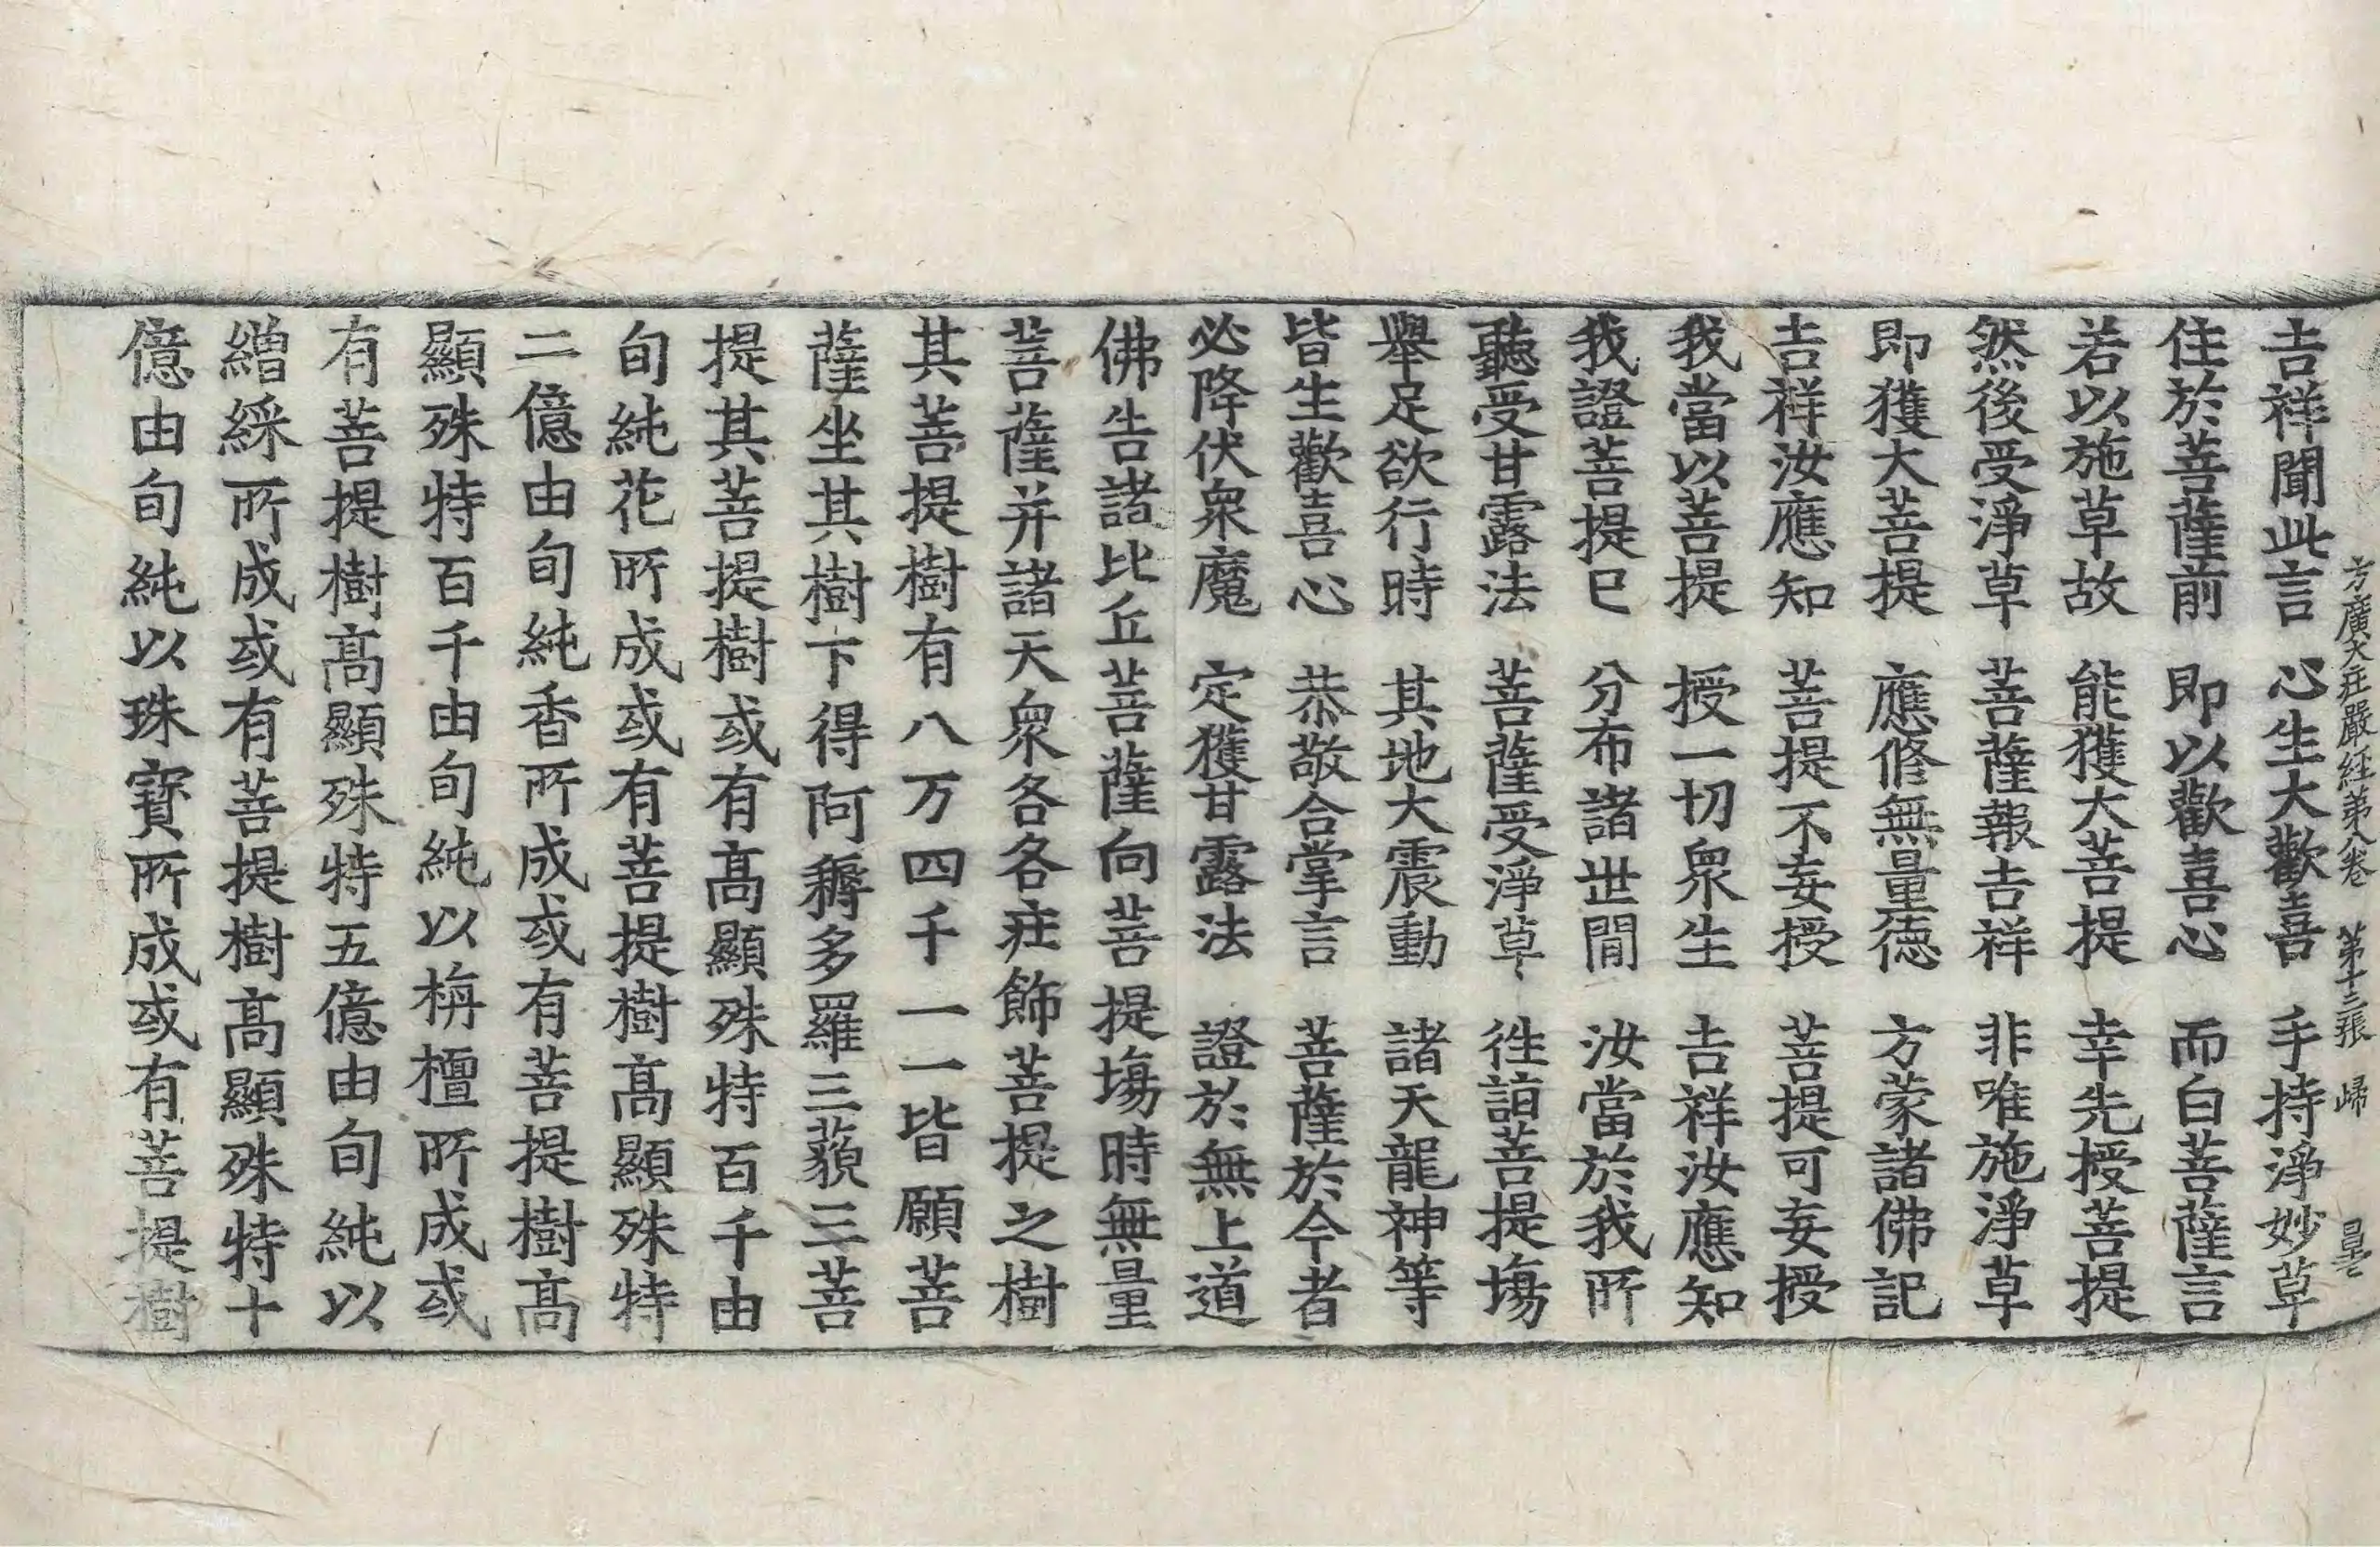 方廣大庄嚴経第八卷 第十三張 歸
吉祥聞此言 心生大歡喜 手持淨妙草
住於菩薩前 即以歡喜心 而白菩薩言
若以施草故 能獲大菩提 幸先授菩提
然後受淨草 菩薩報吉祥 非唯施淨草
即獲大菩提 應俻無量德 方蒙諸佛記
吉祥汝應知 菩提不妄授 菩提可妄授
我當以菩提 授一切衆生 吉祥汝應知
我證菩提巳 分布諸世閒 汝當於我所
聽受甘露法 菩薩受淨草 徃詣菩提場
舉足欲行時 其地大震動 諸天龍神等
皆生歡喜心 恭敬合掌言 菩薩於今者
必降伏衆魔 定獲甘露法 證於無上道
佛告諸比丘菩薩向菩提塲時無量
菩薩并諸天衆各各庄飾菩提之樹
其菩提樹有八万四千一一皆願菩
薩坐其樹下得阿耨多羅三藐三菩
提其菩提樹或有髙顯殊特百千由
旬純花所成或有菩提樹髙顯殊特
二億由旬純香所成或有菩提樹髙
顯殊特百千由旬純以栴檀所成或
有菩提樹髙顯殊特五億由旬純以
繒綵所成或有菩提樹髙顯殊特十
億由旬純以珠寳所成或有菩提樹